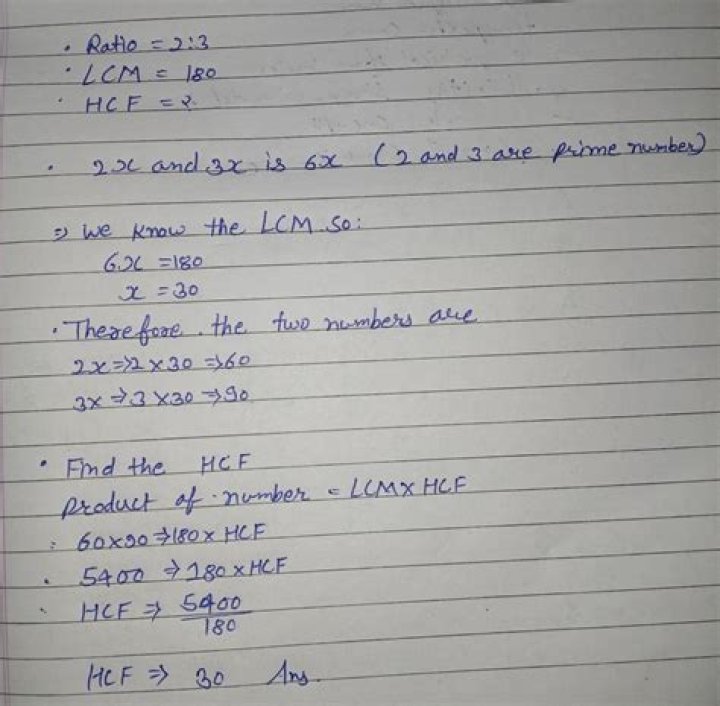 • Ratio = 2:3
• LCM = 180
• HCF = ?
• 2x and 3x is 6x (2 and 3 are prime number)
⇒ We know the LCM so:
6x = 180
x = 30
• Therefore. the two numbers are
2x ⇒ 2 × 30 ⇒ 60
3x ⇒ 3 × 30 ⇒ 90
• Find the HCF
Product of number = LCM × HCF
: 60×90 ⇒ 180 × HCF
• 5400 ⇒ 180 × HCF
• HCF ⇒ 5400
180
HCF ⇒ 30 Ans.